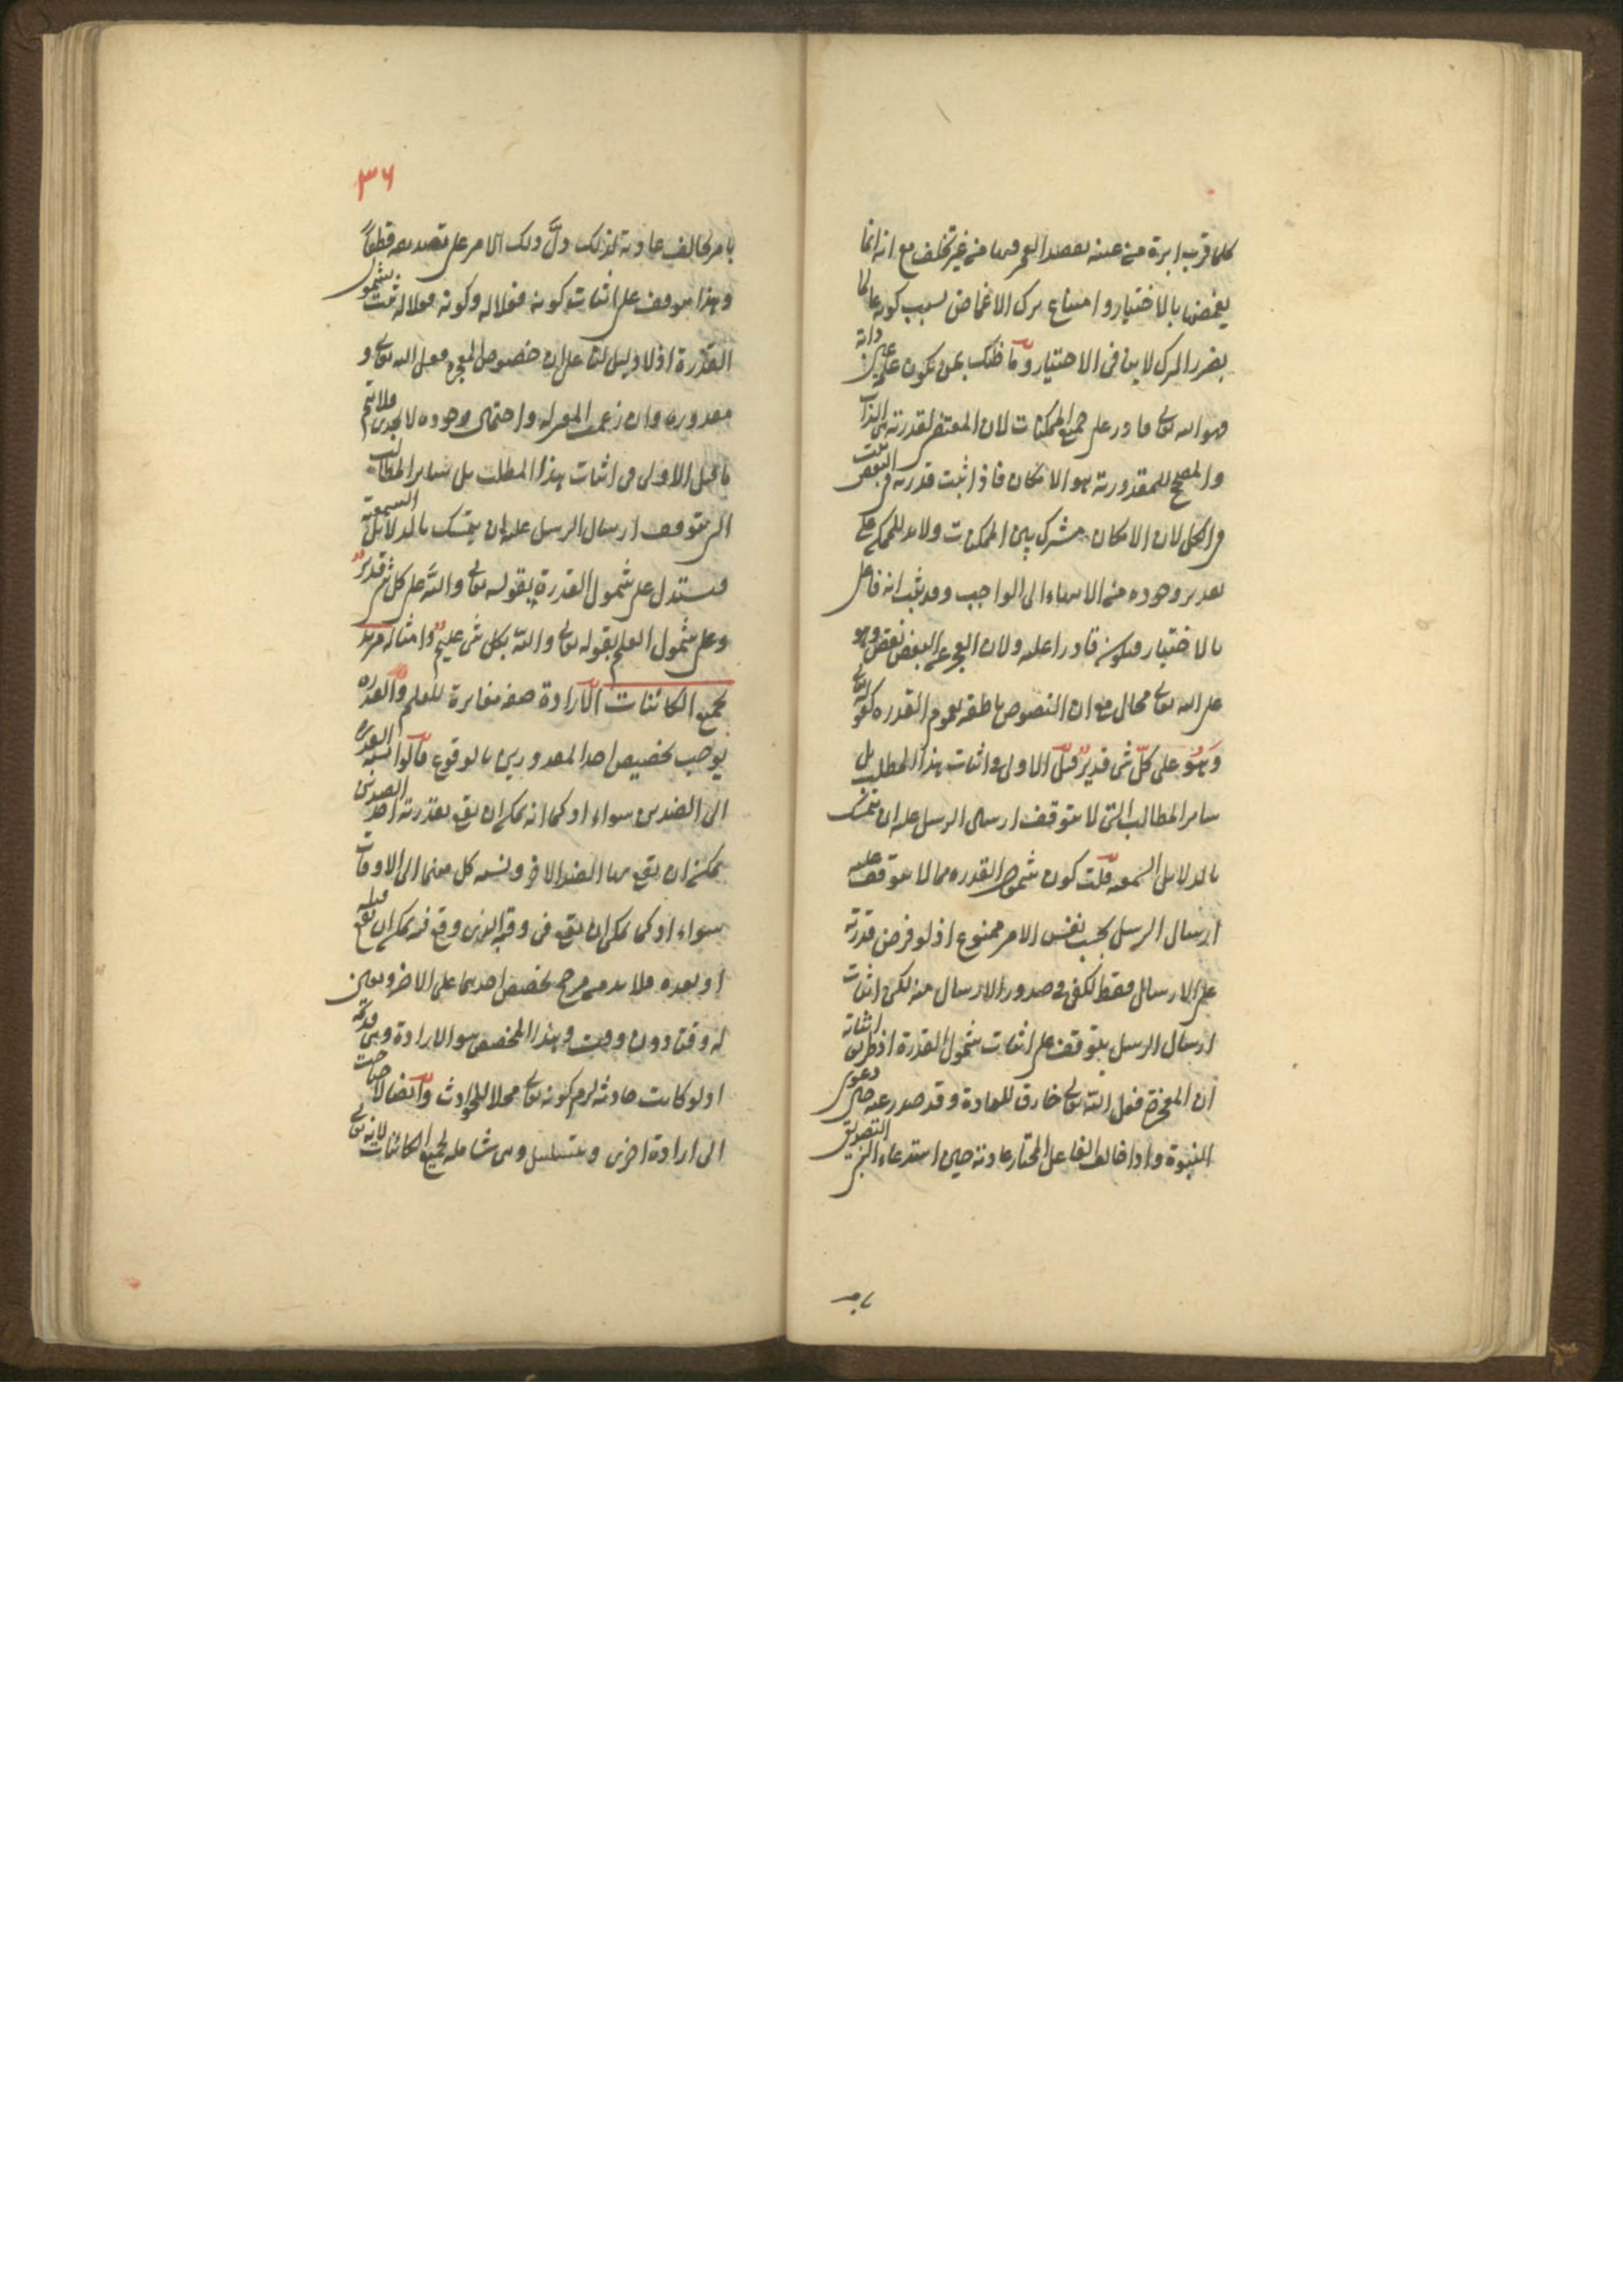 كلما قرب ابرة من عينه بقصد الغمز فيها من غير تخلف مع انه انما
يغمضها بالاختيار وامتناع ترك الاغماض بسبب كونه عالما
بضرر الترك لا ينافى الاختيار وما ظنك بمن يكون علمه عين ذاته
فهو الله تعالى قادر على جميع الممكنات لان المقتضى لقدرته هى الذات
والمصحح للمقدورية هو الامكان فاذا ثبت قدرته فى البعض ثبت
فى الكل لان الامكان مشترك بين الممكنات ولا بد للممكن على
تقدير وجوده من الانتهاء الى الواجب وقد ثبت انه فاعل
بالاختيار فيكون قادرا عليه ولان العجز عن البعض نقص وهو
على الله تعالى محال مع ان النصوص ناطقة بعموم القدرة كقوله تعالى
وهو على كل شئ قدير قيل الاولى فى اثبات هذا المطلب بل
سائر المطالب التى لا يتوقف ارسال الرسل عليه ان يتمسك
بالدلايل السمعية قلت كون شمول القدرة مما لا يتوقف عليه
ارسال الرسل بحسب نفس الامر ممنوع اذ لو فرض قدرته
على الارسال فقط لكفى فى صدور الارسال منه لكن اثبات
ارسال الرسل يتوقف على اثبات شمول القدرة اذ طريق اثباته
ان المعجزة فعل الله تعالى خارق للعادة وقد صدر عنه حين دعوى
النبوة واذا خالف الفاعل المختار عادته حين استدعاء النبى التصديق
بامر
٣٦
بامر يخالف عادته لذلك دل ذلك الامر على تصديقه قطعا
وهذا يتوقف على اثبات كونه فعلا له وكونه فعلا له ثبت بشمول
القدرة اذ لا دليل لنا على ان خصوص المعجزة فعل الله تعالى و
مقدوره وان زعمت المعتزلة واحتمال وجوده لا يجدى فلا يتم
ما قيل الاولى فى اثبات هذا المطلب بل سائر المطالب
التى يتوقف ارسال الرسل عليه ان يتمسك بالدلايل السمعية
فيستدل على شمول القدرة بقوله تعالى والله على كل شئ قدير
وعلى شمول العلم بقوله تعالى والله بكل شئ عليم وامثاله مريد
لجميع الكائنات الارادة صفة مغايرة للعلم والقدرة
يوجب تخصيص احد المقدورين بالوقوع قالوا نسبة القدرة
الى الضدين سواء اذ كما انه يمكن ان يقع بقدرته احد الضدين
يمكن ان يقع بها الضد الاخر ونسبة كل منهما الى الاوقات
سواء اذ كما يمكن ان يقع فى وقته الذى وقع فيه يمكن ان يقع قبله
او بعده فلا بد من مرجح يخصص احدهما على الاخر ويعين
له وقتا دون وقت وهذا المخصص هو الارادة وهى قديمة
اذ لو كانت حادثة لزم كونه تعالى محلا للحوادث وايضا لاحتاجت
الى ارادة اخرى ويتسلسل وهى شاملة لجميع الكائنات لانه تعالى